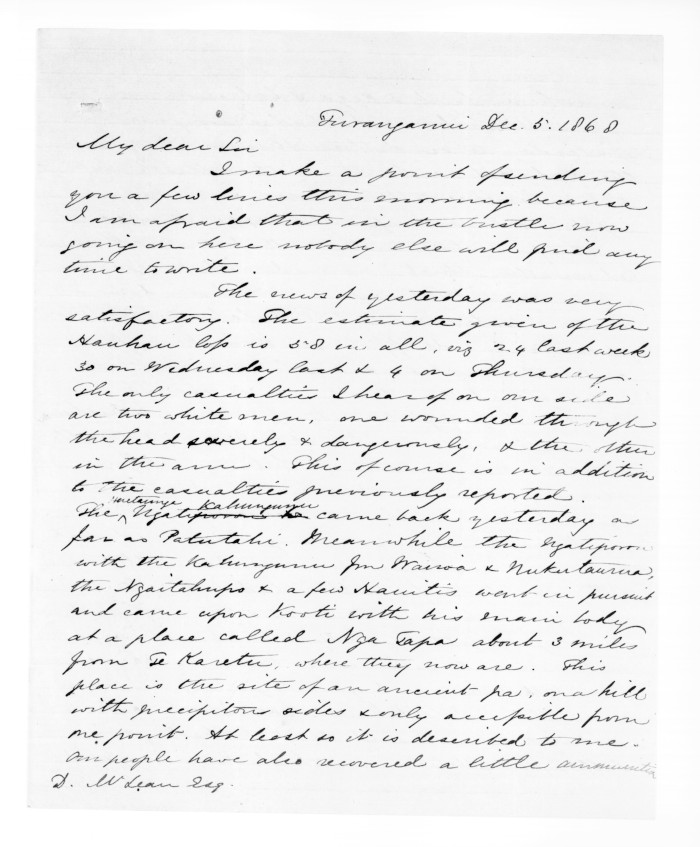 Turanganui Dec. 5. 1868
My dear Sir
I make a point of sending
you a few lines this morning because
I am afraid that in the bustle now
going on here nobody else will find any
time to write.
The news of yesterday was very
satisfactory. The estimate given of the
Hauhau loss is 58 in all, viz 24 last week
30 on Wednesday last & 4 on Thursday.
The only casualties I hear of on our side
are two white men, one wounded through
the head severely & dangerously, & the other
in the arm. This of course is in addition
to the casualties previously reported.
Kahungunu
The Ngatiporou came back yesterday as
far as Patutahi. Meanwhile the Ngatiporou
with the Kahungunu fm Wairoa & Nukutaurua,
the Ngaitahupo & a few Hauitis went in pursuit
and came upon Kooti with his main body
at a place called Nga Tapa about 3 miles
from Te Karetu, where they now are. This
place is the site of an ancient pa, on a hill
with precipitous sides & only accessible from
one point. At least so it is described to me.
Our people have also recovered a little ammunition
D. McLean Esq.